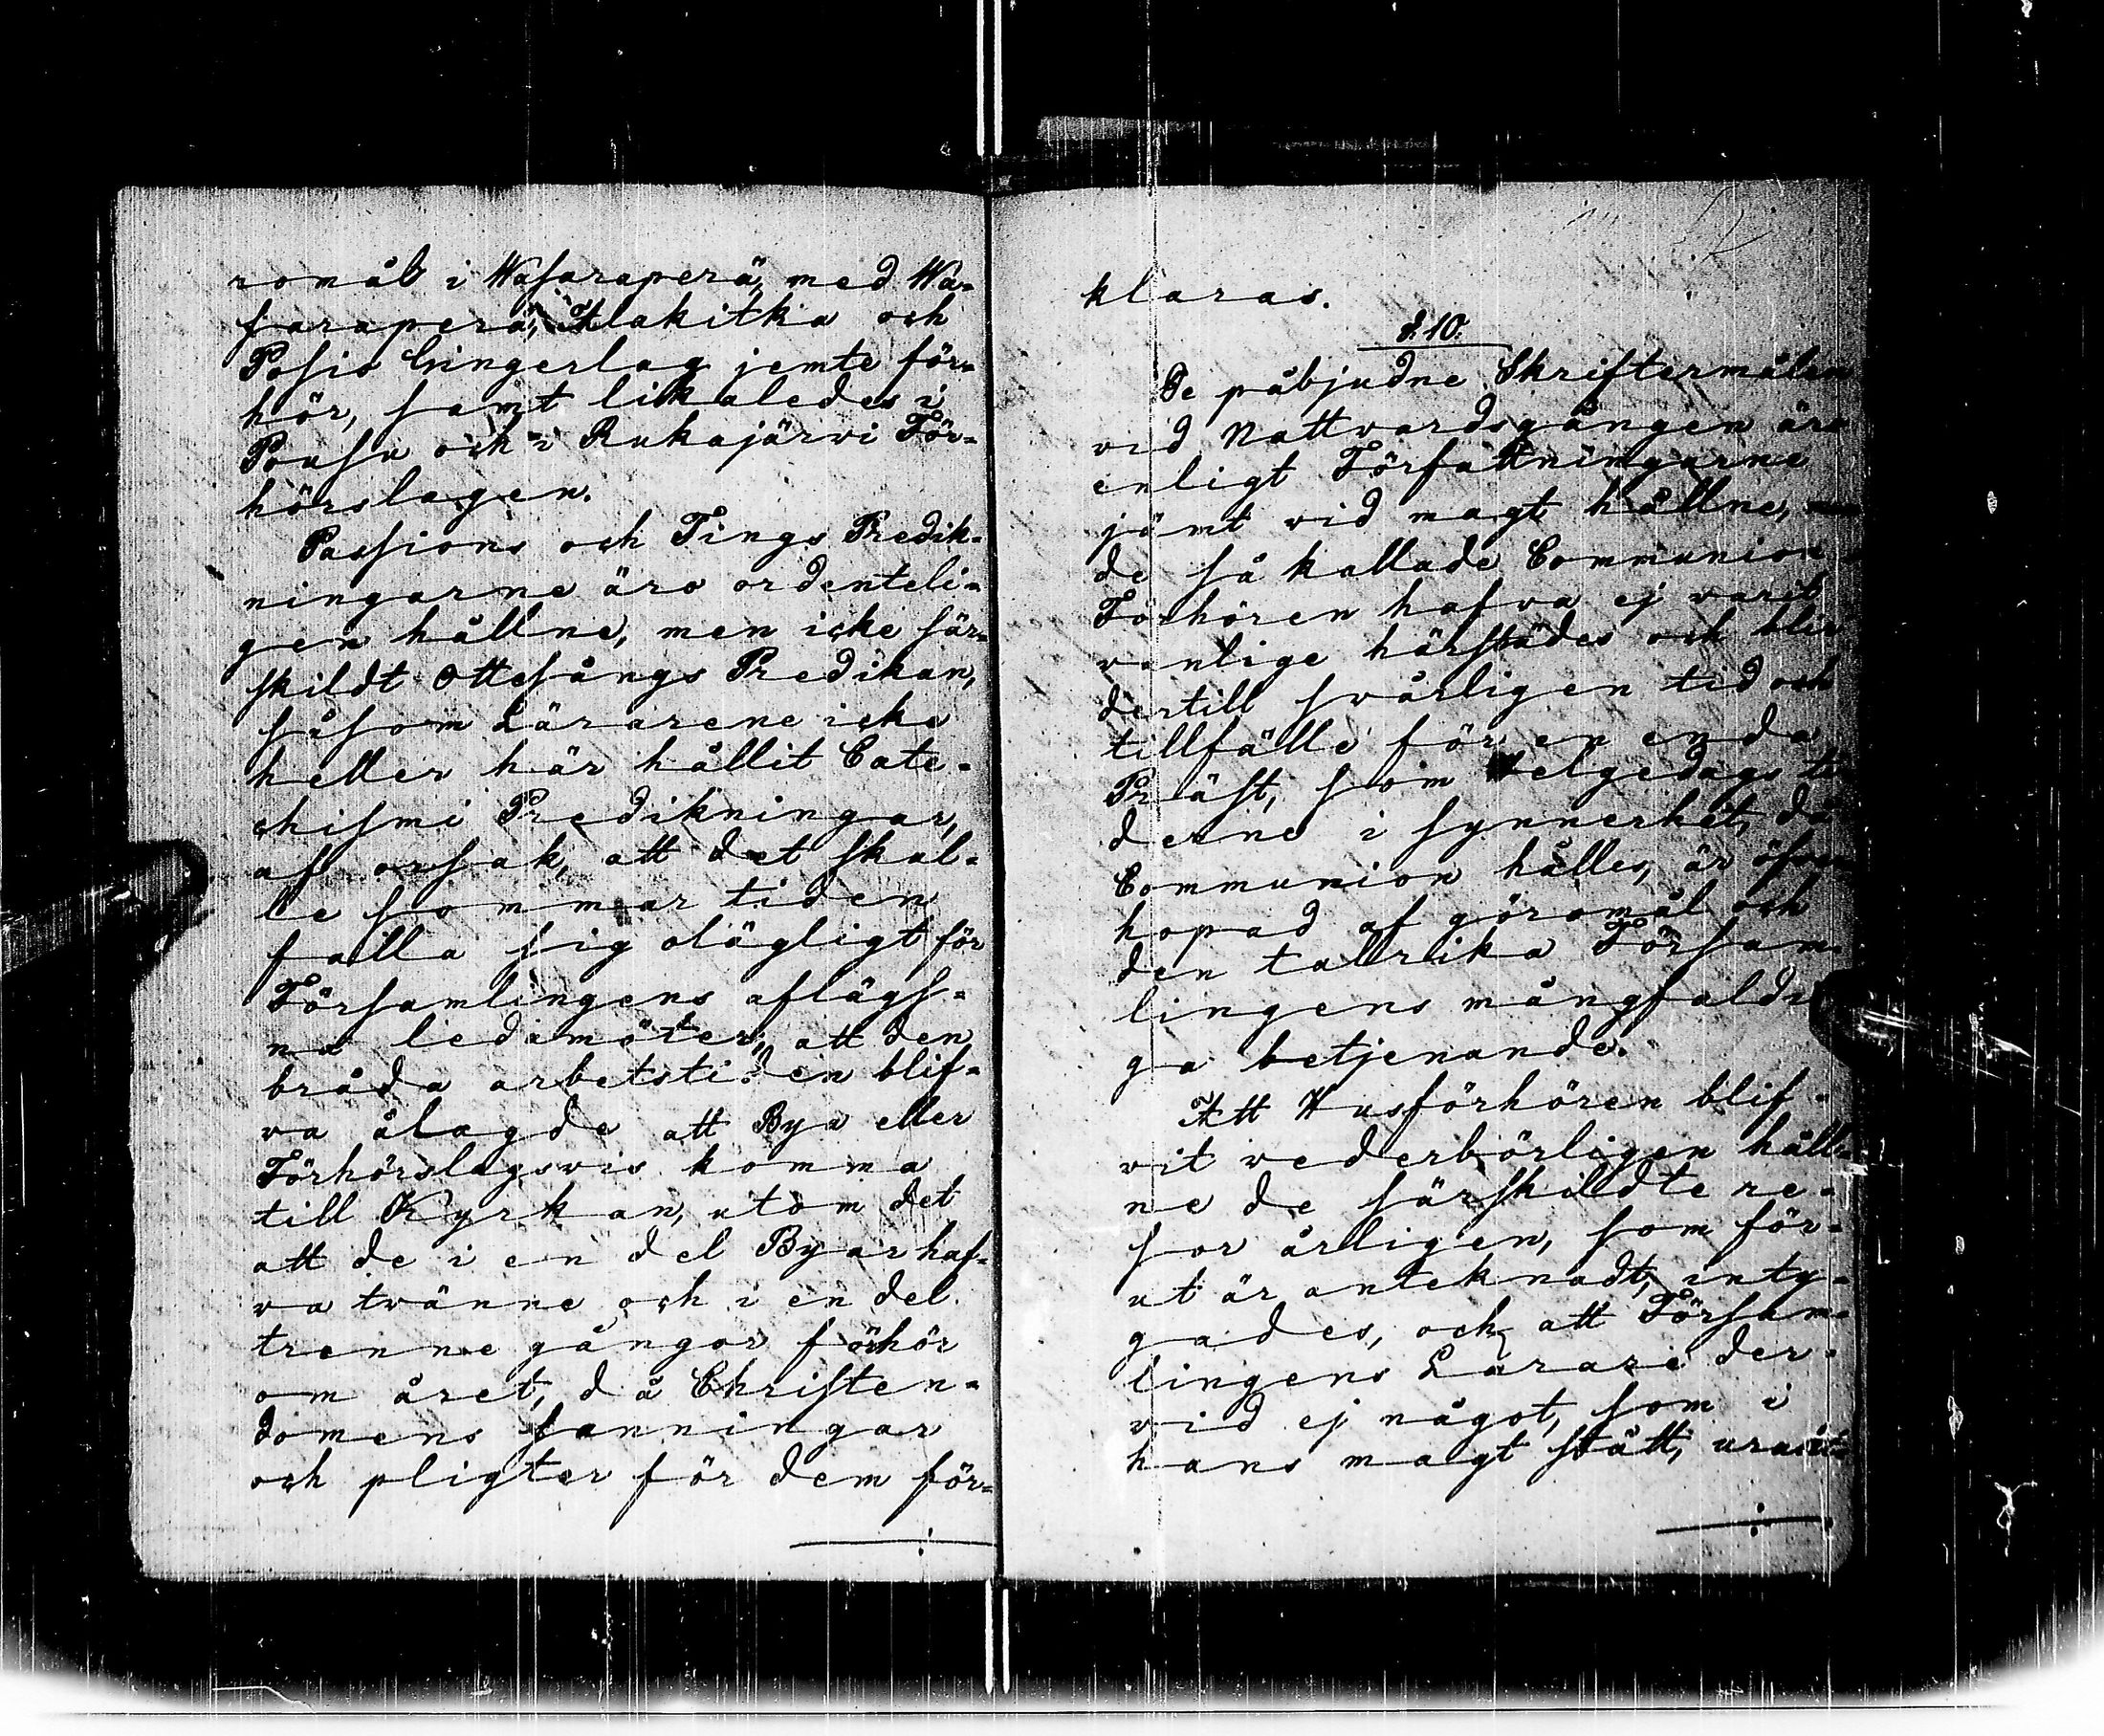 romål i Wasaraperä, med Wa-
saraperä, Alakitka och
Posio Gingerlag jemte för-
hör, samt likaledes i
Pousu och i Rukajärwi För-
hörslagen.
Passions och Tings Predik-
ningarne äro ordenteli-
gen hållne, men icke sär-
skildt Ottesångs Predikan,
såsom Lärarene icke
heller här hållit Cate-
chismi Predikningar,
af orsak, att det skul-
le sommar tiden
falla sig olägligt för
Församlingens aflägs-
na ledamöter, att den
bråda arbetstiden blif-
va ålagde att Bya eller
Förhörslagsvis komma
till Kyrkan, utom det
att de i en del Byar haf-
va tvänne och i en del
trenne gångor förhör
om året, då Christen-
domens sanningar
och pligter för dem för-
klaras.
§. 10.
De påbjudne Skriftermålen
vid Nattvardsgången äro
enligt Författningarne
jämt vid magt hållne, men
de så kallade Communion
Förhören hafva ej varit
vanlige härstädes och blir
dertill svårligen tid och
tillfälle för en enda
Präst, som Helgedags ti-
derne i synnerhet, då
Communion hålles, är öfver
hopad af göromål och
den talrika Försam-
lingens mångfaldi
ga betjenande.
Att Husförhören blif-
vit vederbörligen håll-
ne de särskildte re-
sor årligen, som för-
ut är anteknadt, inty-
gades, och att Försam-
lingens Lärare der-
vid ej något, som i
hans magt stått,